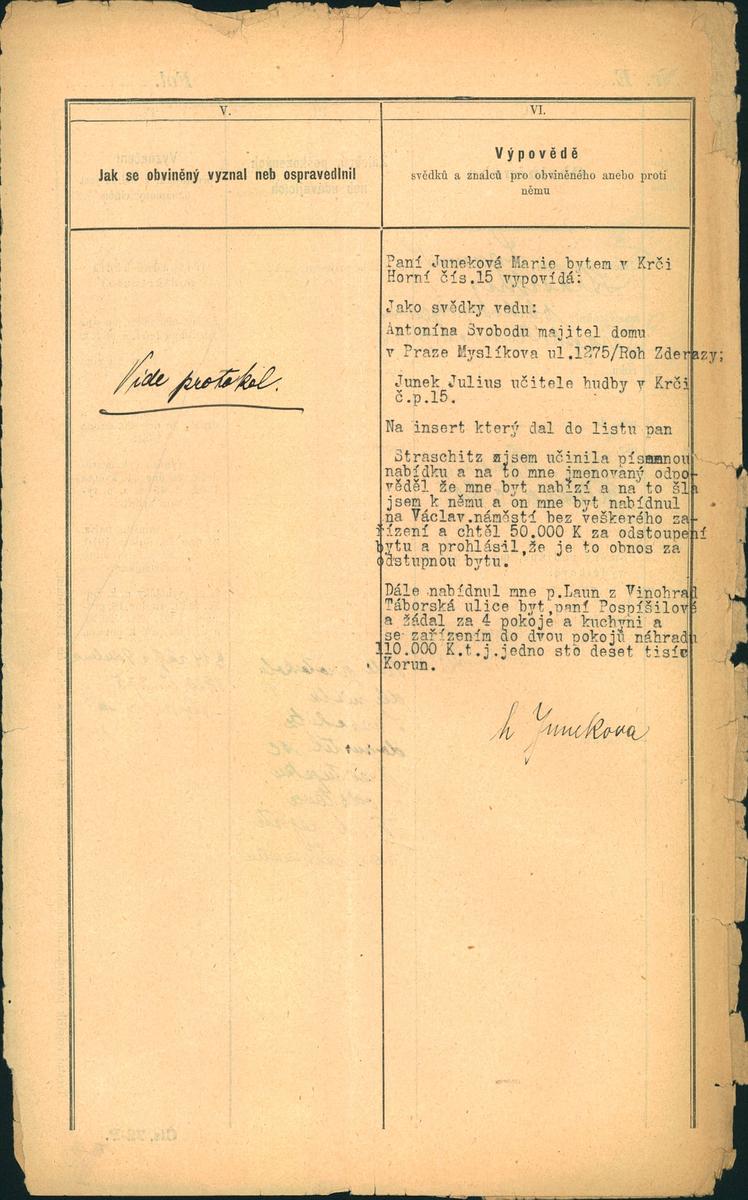 V.
Jak se obviněný vyznal neb ospravedlnil
Vide protokol.
VI.
Výpovědě
svědků a znalců pro obviněného anebo proti
němu
Paní Juneková Marie bytem v Krči
Horní čís.15 vypovídá:
Jako svědky vedu:
Antonína Svobodu majitel domu
v Praze Myslíkova ul.1275/Roh Zderazy;
Junek Julius učitele hudby v Krči
č.p.15.
Na insert který dal do listu pan
Straschitz jsem učinila písemnou
nabídku a na to mne jmenovaný odpo-
věděl že mne byt nabízí a na to šla
jsem k němu a on mne byt nabídnul
na Václav.náměstí bez veškerého za-
řízení a chtěl 50.000 K za odstoupení
bytu a prohlásil,že je to obnos za
odstupnou bytu.
Dále nabídnul mne p.Laun z Vinohrad
Táborská ulice byt,paní Pospíšilová
a žádal za 4 pokoje a kuchyni a
se zařízením do dvou pokojů náhradu
110.000 K.t.j.jedno sto deset tisíc
Korun.
Juneková